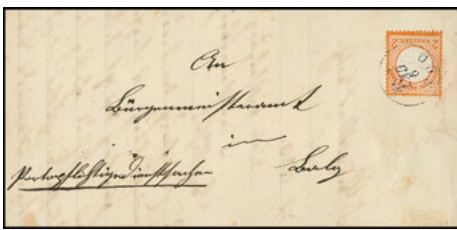 An
Bürgermeisteramt
in
Portopflichtige Dienstsache